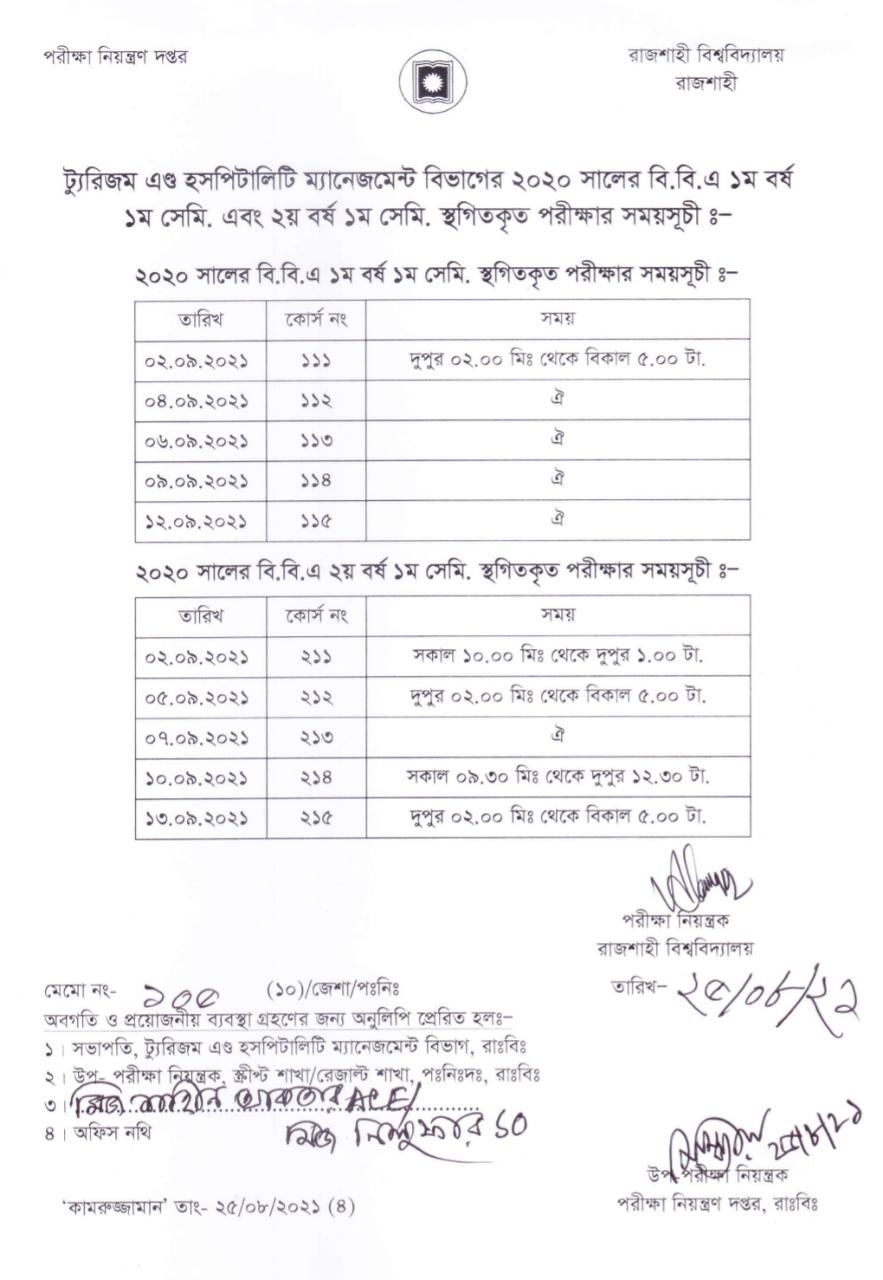 পরীক্ষা নিয়ন্ত্রণ দপ্তর
রাজশাহী বিশ্ববিদ্যালয়
রাজশাহী
ট্যুরিজম এণ্ড হসপিটালিটি ম্যানেজমেন্ট বিভাগের ২০২০ সালের বি.বি.এ ১ম বর্ষ
১ম সেমি. এবং ২য় বর্ষ ১ম সেমি. স্থগিতকৃত পরীক্ষার সময়সূচী ঃ-
২০২০ সালের বি.বি.এ ১ম বর্ষ ১ম সেমি. স্থগিতকৃত পরীক্ষার সময়সূচী ঃ-
তারিখ কোর্স নং সময়
০২.০৯.২০২১ ১১১ দুপুর ০২.০০ মিঃ থেকে বিকাল ৫.০০ টা.
০৪.০৯.২০২১ ১১২ ঐ
০৬.০৯.২০২১ ১১৩ ঐ
০৯.০৯.২০২১ ১১৪ ঐ
১২.০৯.২০২১ ১১৫ ঐ
২০২০ সালের বি.বি.এ ২য় বর্ষ ১ম সেমি. স্থগিতকৃত পরীক্ষার সময়সূচী ঃ-
তারিখ কোর্স নং সময়
০২.০৯.২০২১ ২১১ সকাল ১০.০০ মিঃ থেকে দুপুর ১.০০ টা.
০৫.০৯.২০২১ ২১২ দুপুর ০২.০০ মিঃ থেকে বিকাল ৫.০০ টা.
০৭.০৯.২০২১ ২১৩ ঐ
১০.০৯.২০২১ ২১৪ সকাল ০৯.৩০ মিঃ থেকে দুপুর ১২.৩০ টা.
১৩.০৯.২০২১ ২১৫ দুপুর ০২.০০ মিঃ থেকে বিকাল ৫.০০ টা.
পরীক্ষা নিয়ন্ত্রক
রাজশাহী বিশ্ববিদ্যালয়
মেমো নং- ১০৫ (১০)/জেশা/পঃনিঃ
তারিখ- ২৫/০৮/২১
অবগতি ও প্রয়োজনীয় ব্যবস্থা গ্রহণের জন্য অনুলিপি প্রেরিত হলঃ-
১। সভাপতি, ট্যুরিজম এণ্ড হসপিটালিটি ম্যানেজমেন্ট বিভাগ, রাঃবিঃ
২। উপ- পরীক্ষা নিয়ন্ত্রক, স্ক্রীপ্ট শাখা/রেজাল্ট শাখা, পঃনিঃদঃ, রাঃবিঃ
৩। মিজ
৪। অফিস নথি
মিজ
উপ-পরীক্ষা নিয়ন্ত্রক
পরীক্ষা নিয়ন্ত্রণ দপ্তর, রাঃবিঃ
'কামরুজ্জামান' তাং- ২৫/০৮/২০২১ (৪)